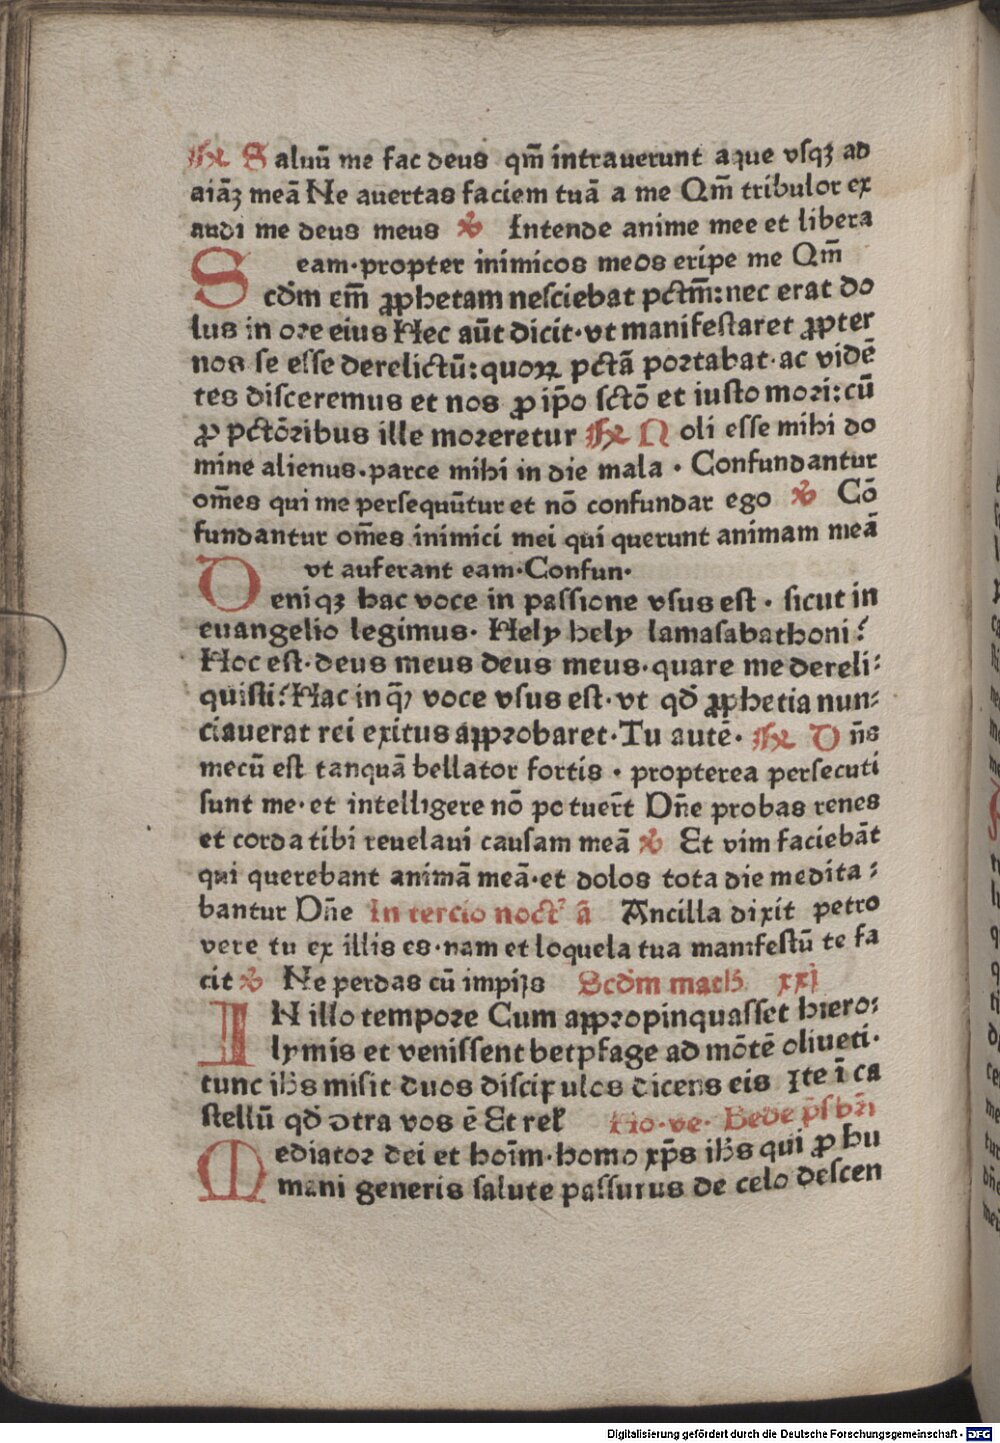 ℟ Saluū me fac deus qm̄ intrauerunt aque vsqꝫ ad
aiāꝫ meā Ne auertas faciem tuā a me Qm̄ tribulor ex
audi me deus meus ℣ Intende anime mee et libera
eam·propter inimicos meos eripe me Qm̄
Scd̄m em̄ ꝓphetam nesciebat pctm̄:nec erat do
lus in ore eius Hec aūt dicit·vt manifestaret ꝓpter
nos se esse derelictū:quoꝝ pctā portabat·ac vidē
tes disceremus et nos ꝓ ip̄o sctō et iusto mori:cū
ꝓ pctōribus ille moreretur ℟ Noli esse mihi do
mine alienus·parce mihi in die mala · Confundantur
om̄es qui me persequūtur et nō confundar ego ℣ Cō
fundantur om̄es inimici mei qui querunt animam meā
vt auferant eam·Confun·
Deniqꝫ hac voce in passione vsus est · sicut in
euangelio legimus· Hely hely lamasabathoni?
Hoc est·deus meus deus meus·quare me dereli:
quisti?Hac in q̄ȝ voce vsus est·vt qd̄ ꝓphetia nun:
ciauerat rei exitus approbaret·Tu autē· ℟ Dn̄s
mecū est tanquā bellator fortis · propterea persecuti
sunt me·et intelligere nō potuer̄t Dn̄e probas renes
et corda tibi reuelaui causam meā ℣ Et vim faciebāt
qui querebant animā meā·et dolos tota die medita:
bantur Dn̄e In tercio noct᷒ ā Ancilla dixit petro
vere tu ex illis es·nam et loquela tua manifestū te fa
cit ℣ Ne perdas cū impijs Scd̄m math xxj
IN illo tempore Cum appropinquasset hiero:
lymis et venissent betpfage ad mōtē oliueti·
tunc ih̄s misit duos discipulos dicens eis Ite ī ca
stellū qd̄ ↄtra vos ē Et relꝭ Ho·ve· Bede p̄sbr̄i
Mediator dei et hoīm·homo xp̄s ih̄s qui ꝓ hu
mani generis salute passurus de celo descen
Digitalisierung gefördert durch die Deutsche Forschungsgemeinschaft · DFG